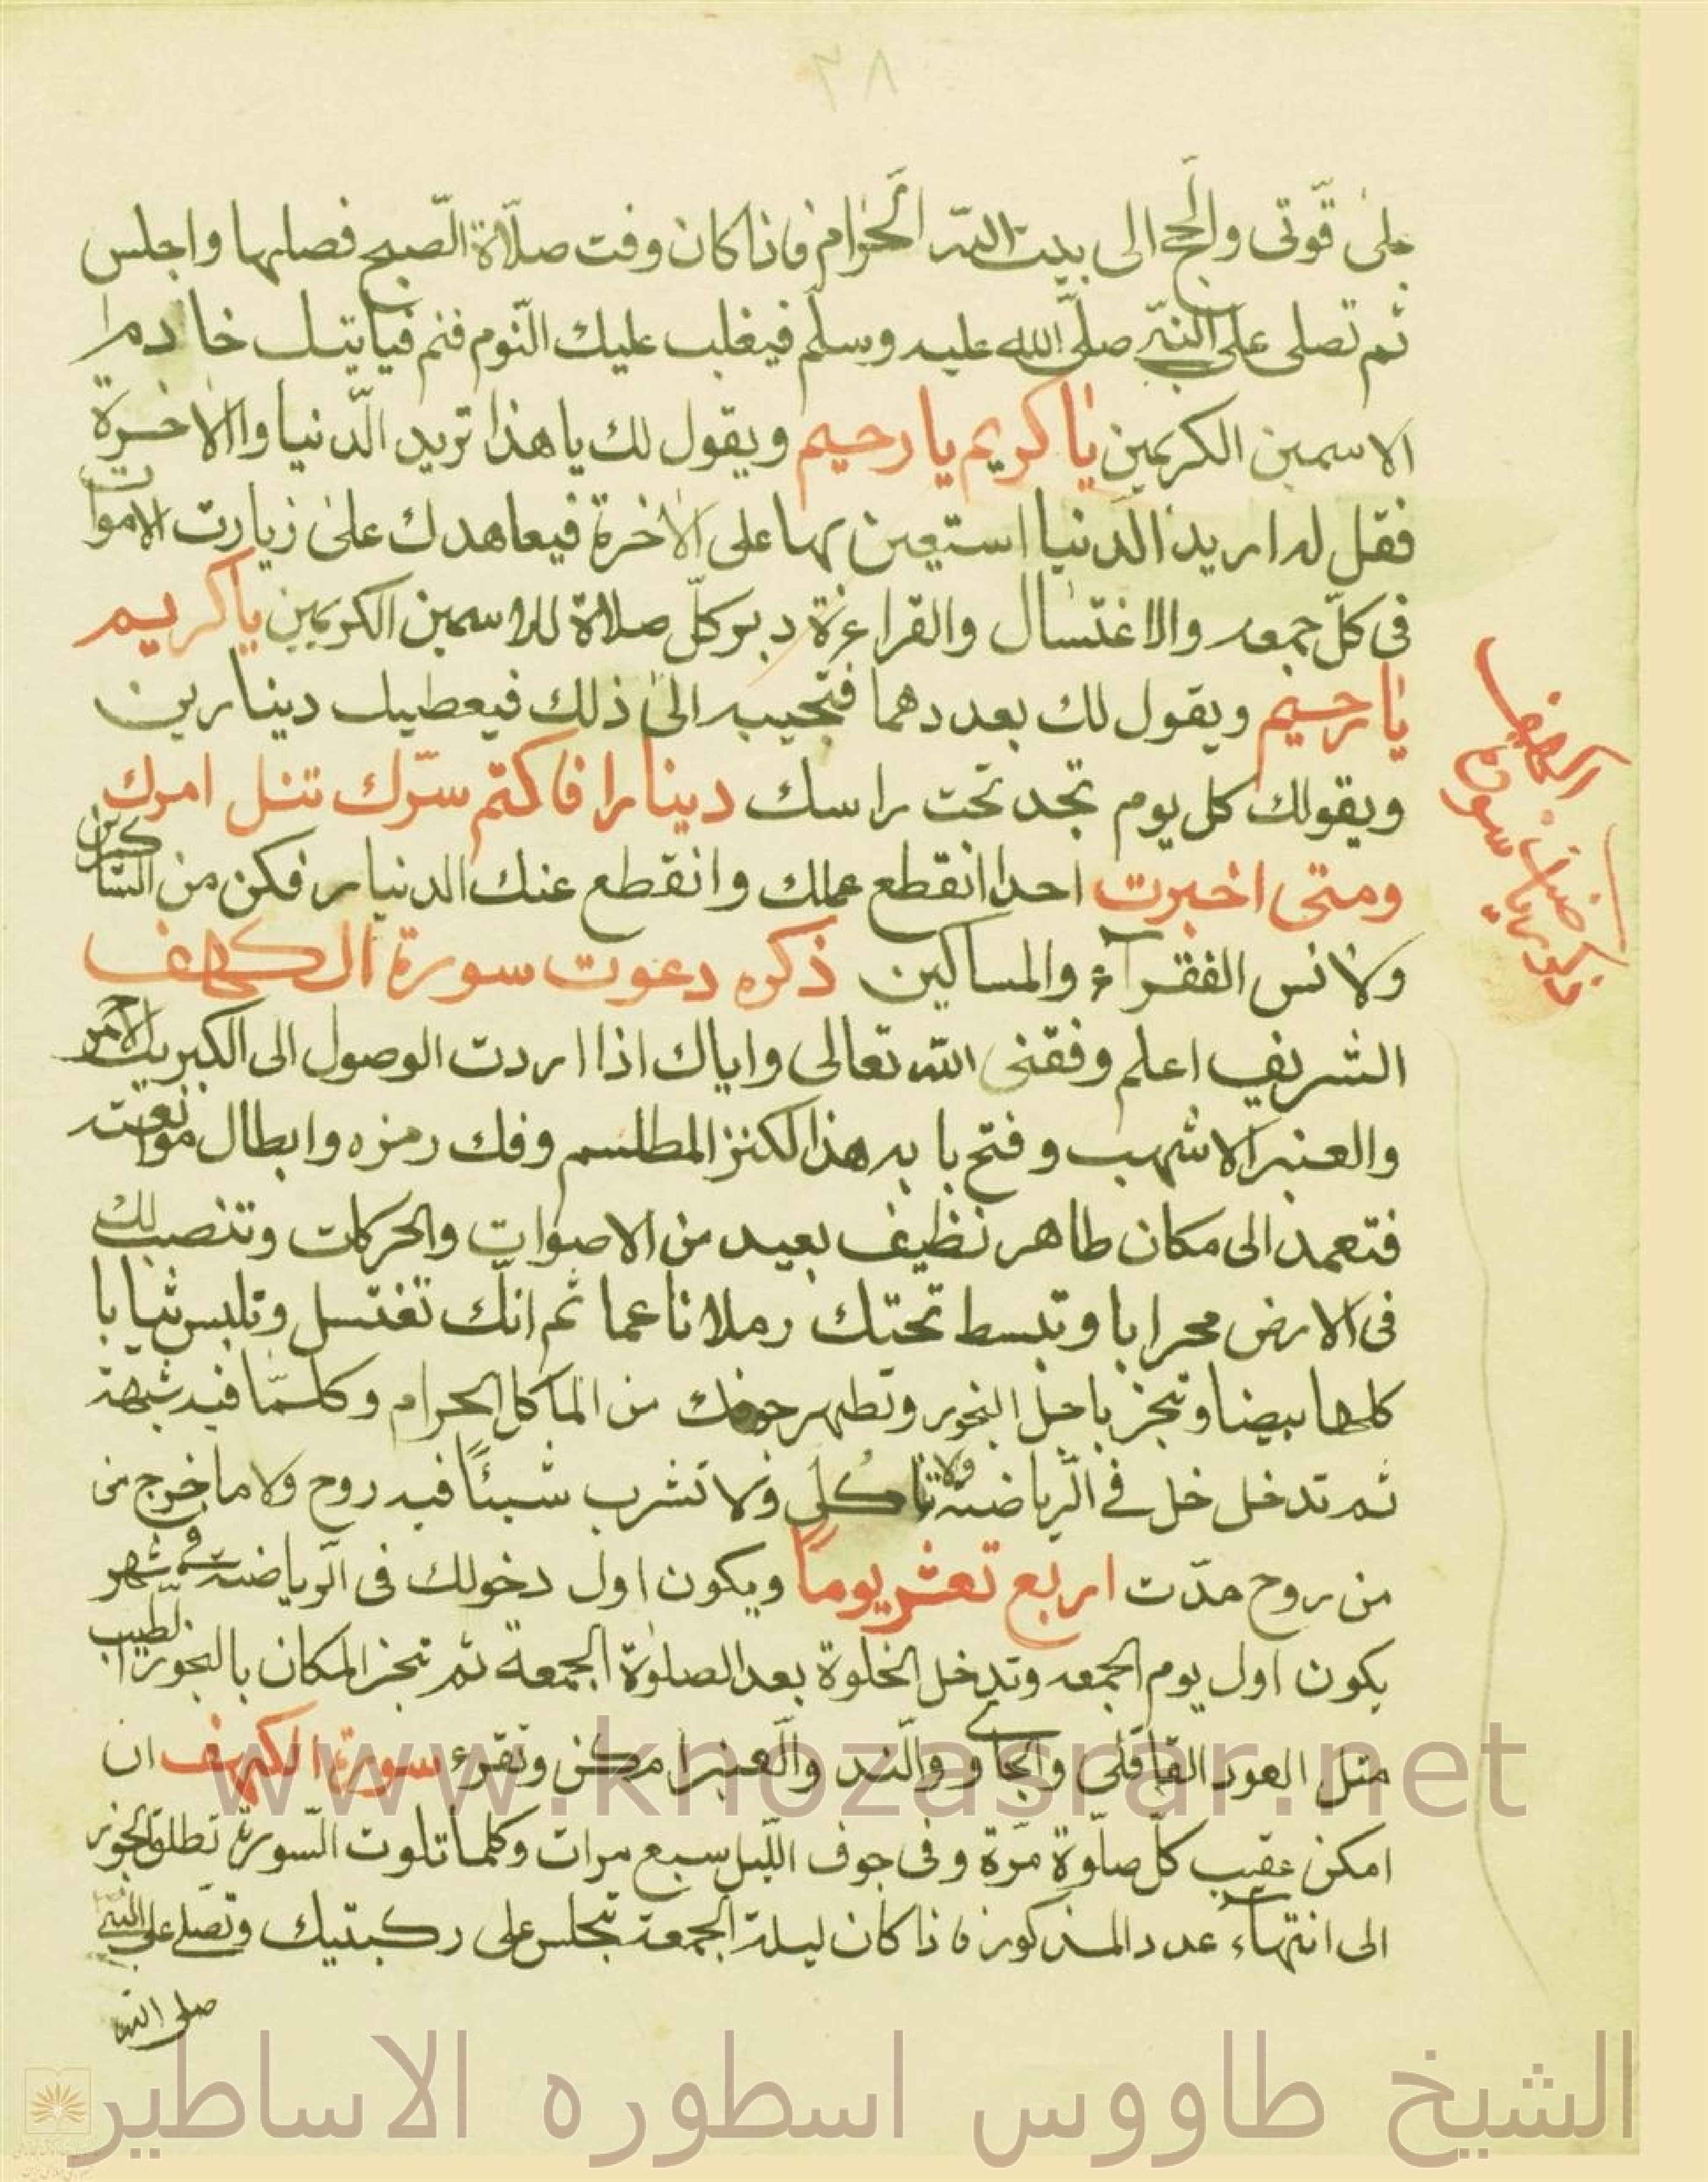 ٣٨
على قوتى والحج الى بيت الله الحرام فاذا كان وقت صلاة الصبح فصلها واجلس
ثم تصلى على النبي صلى الله عليه وسلم فيغلب عليك النوم فنم فياتيك خادم
الاسمين الكريمين يا كريم يا رحيم ويقول لك يا هذا تريد الدنيا والاخرة
فقل له اريد الدنيا استعين بها على الاخرة فيعاهدك على زيارت الاموات
فى كل جمعه والاغتسال والقراءة دبر كل صلاة للاسمين الكريمين يا كريم
يا رحيم ويقول لك بعددهما فتجيبه الى ذلك فيعطيك دينارين
ويقولك كل يوم تجد تحت راسك دينارا فاكتم سرك تنل امرك
ومتى اخبرت احدا انقطع عملك وانقطع عنك الدينار فكن من الشاكرين
ولا تنس الفقرآء والمساكين ذكره دعوت سورة الكهف
الشريف اعلم وفقنى الله تعالى واياك اذا اردت الوصول الى الكبريت الاحمر
والعنبر الاشهب وفتح بابه هذا الكنز المطلسم وفك رمزه وابطال موانعته
فتعمد الى مكان طاهر نظيف بعيد من الاصوات والحركات وتنصب لك
فى الارض محرابا وتبسط تحتك رملا ناعما ثم انك تغتسل وتلبس ثيابا
كلها بيضا وتبخر باجل البخور وتطهر جوفك من الماكل الحرام وكلما فيه شبهة
ثم تدخل خل في الرياضة ولا تاكل ولا تشرب شيئا فيه روح ولا ما خرج من
من روح مدت اربع تعشر يوما ويكون اول دخولك فى الرياضة في شهر
يكون اول يوم الجمعه وتدخل الخلوة بعد الصلوة الجمعة ثم تبخر المكان بالبخور الطيب
مثل العود القاقلى والجاوي والند والعنبر امكن وتقرء سورة الكهف ان
امكن عقيب كل صلوة مرة وفى جوف الليل سبع مرات وكلما تلوت السورة تطلق البخور
الى انتهآء عدد المذكور فاذا كان ليلة الجمعة تجلس على ركبتيك وتصلى على النبي
صلى الله
www.knozasrar.net
الشيخ طاووس اسطوره الاساطير